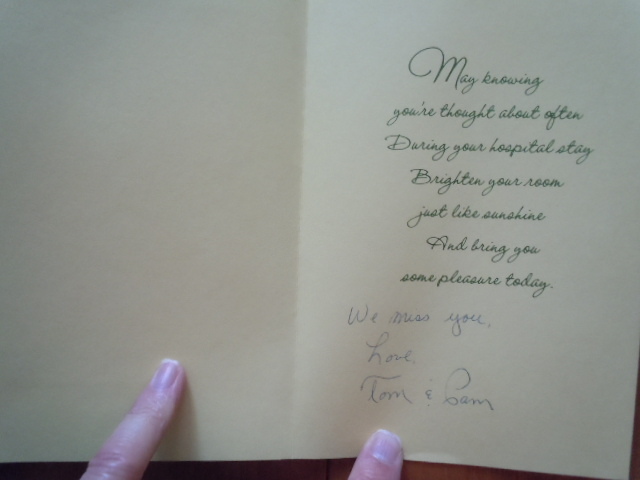 May knowing
you're thought about often
During your hospital stay
Brighten your room
just like sunshine
And bring you
some pleasure today.
We miss you,
Love,
Tom & Sam